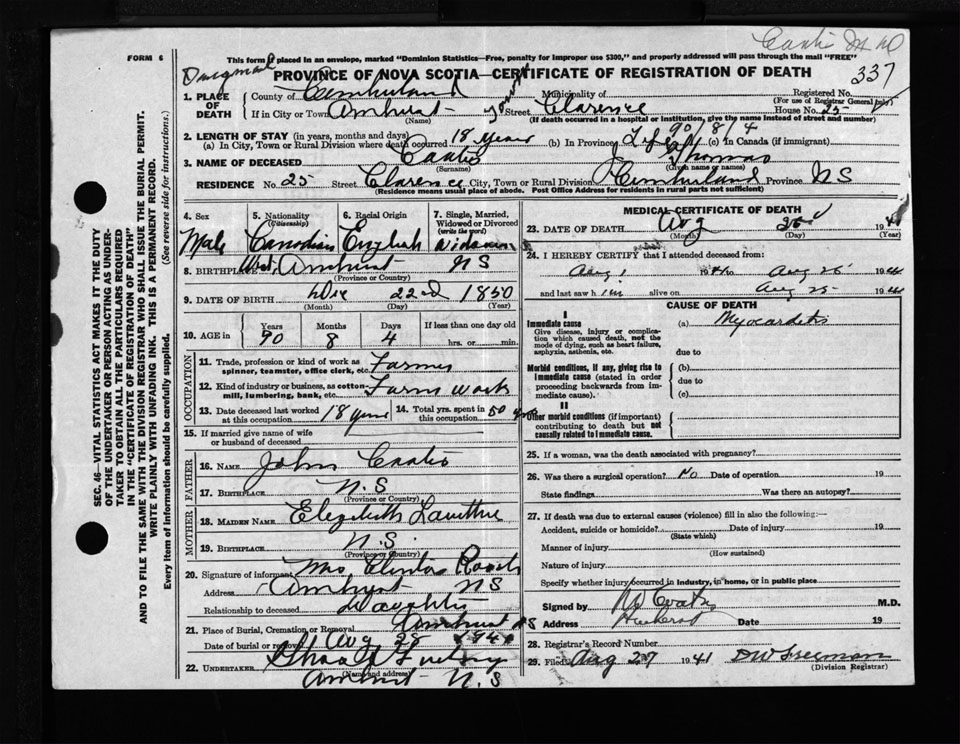 FORM 6
This form if placed in an envelope, marked "Dominion Statistics—Free, penalty for improper use $300," and properly addressed will pass through the mail "FREE"
337
PROVINCE OF NOVA SCOTIA—CERTIFICATE OF REGISTRATION OF DEATH
1. PLACE OF DEATH
County of Cumberland Municipality of Registered No.
(For use of Registrar General only)
If in City or Town Amherst Street Clarence House No. 25
(Name) (If death occurred in a hospital or institution, give name instead of street and number)
2. LENGTH OF STAY (in years, months and days)
(a) In City, Town or Rural Division where death occurred 18 years (b) In Province Life 90/8/4 (c) In Canada (if immigrant)
3. NAME OF DECEASED Thomas
(Surname) (Given name or names)
RESIDENCE No. 25 Street Clarence City, Town or Rural Division Cumberland Province NS
(Residence means usual place of abode. Post Office Address for residents in rural parts not sufficient)
SEC. 46—VITAL STATISTICS ACT MAKES IT THE DUTY OF THE UNDERTAKER OR PERSON ACTING AS UNDERTAKER TO OBTAIN ALL THE PARTICULARS REQUIRED IN THE "CERTIFICATE OF REGISTRATION OF DEATH"
AND TO FILE THE SAME WITH THE DIVISION REGISTRAR WHO SHALL ISSUE THE BURIAL PERMIT.
WRITE PLAINLY WITH UNFADING INK. THIS IS A PERMANENT RECORD.
Every item of information should be carefully supplied. (See reverse side for instructions.)
4. Sex 5. Nationality (Citizenship) 6. Racial Origin 7. Single, Married, Widowed or Divorced (write the word)
Male Canadian English Widower
8. BIRTHPLACE West Amherst NS
(Province or Country)
9. DATE OF BIRTH Dec 22nd 1850
(Month) (Day) (Year)
10. AGE in Years Months Days If less than one day old
90 8 4 hrs. or min.
OCCUPATION
11. Trade, profession or kind of work as spinner, teamster, office clerk, etc. Farmer
12. Kind of industry or business, as cotton-mill, lumbering, bank, etc. Farm work
13. Date deceased last worked at this occupation 18 years 14. Total yrs. spent in this occupation 50 yrs
15. If married give name of wife or husband of deceased
FATHER
16. NAME John
17. BIRTHPLACE N.S
(Province or Country)
MOTHER
18. MAIDEN NAME Elizabeth
19. BIRTHPLACE N.S.
(Province or Country)
20. Signature of informant Mrs Clinton Roach
Address Amherst NS
Relationship to deceased daughter
21. Place of Burial, Cremation or Removal Amherst NS
Date of burial or removal Aug 28 194
22. UNDERTAKER
(Name and address)
Amherst N.S
MEDICAL CERTIFICATE OF DEATH
23. DATE OF DEATH Aug 26 194
(Month) (Day) (Year)
24. I HEREBY CERTIFY that I attended deceased from:
Aug 1 19 to Aug 26 19
and last saw him alive on Aug 25 19
CAUSE OF DEATH
I
Immediate cause (a) Myocarditis
Give disease, injury or complication which caused death, not the mode of dying, such as heart failure, asphyxia, asthenia, etc.
due to
Morbid conditions, if any, giving rise to immediate cause (stated in order proceeding backwards from immediate cause).
(b)
due to
(c)
II
Other morbid conditions (if important) contributing to death but not causally related to immediate cause.
25. If a woman, was the death associated with pregnancy?
26. Was there a surgical operation? No Date of operation 19
State findings Was there an autopsy?
27. If death was due to external causes (violence) fill in also the following:—
Accident, suicide or homicide? Date of injury 19
(State which)
Manner of injury
(How sustained)
Nature of injury
Specify whether injury occurred in industry, in home, or in public place
Signed by M.D.
Address Date 19
28. Registrar's Record Number
29. Filed Aug 27 1941 DW Freeman
(Division Registrar)